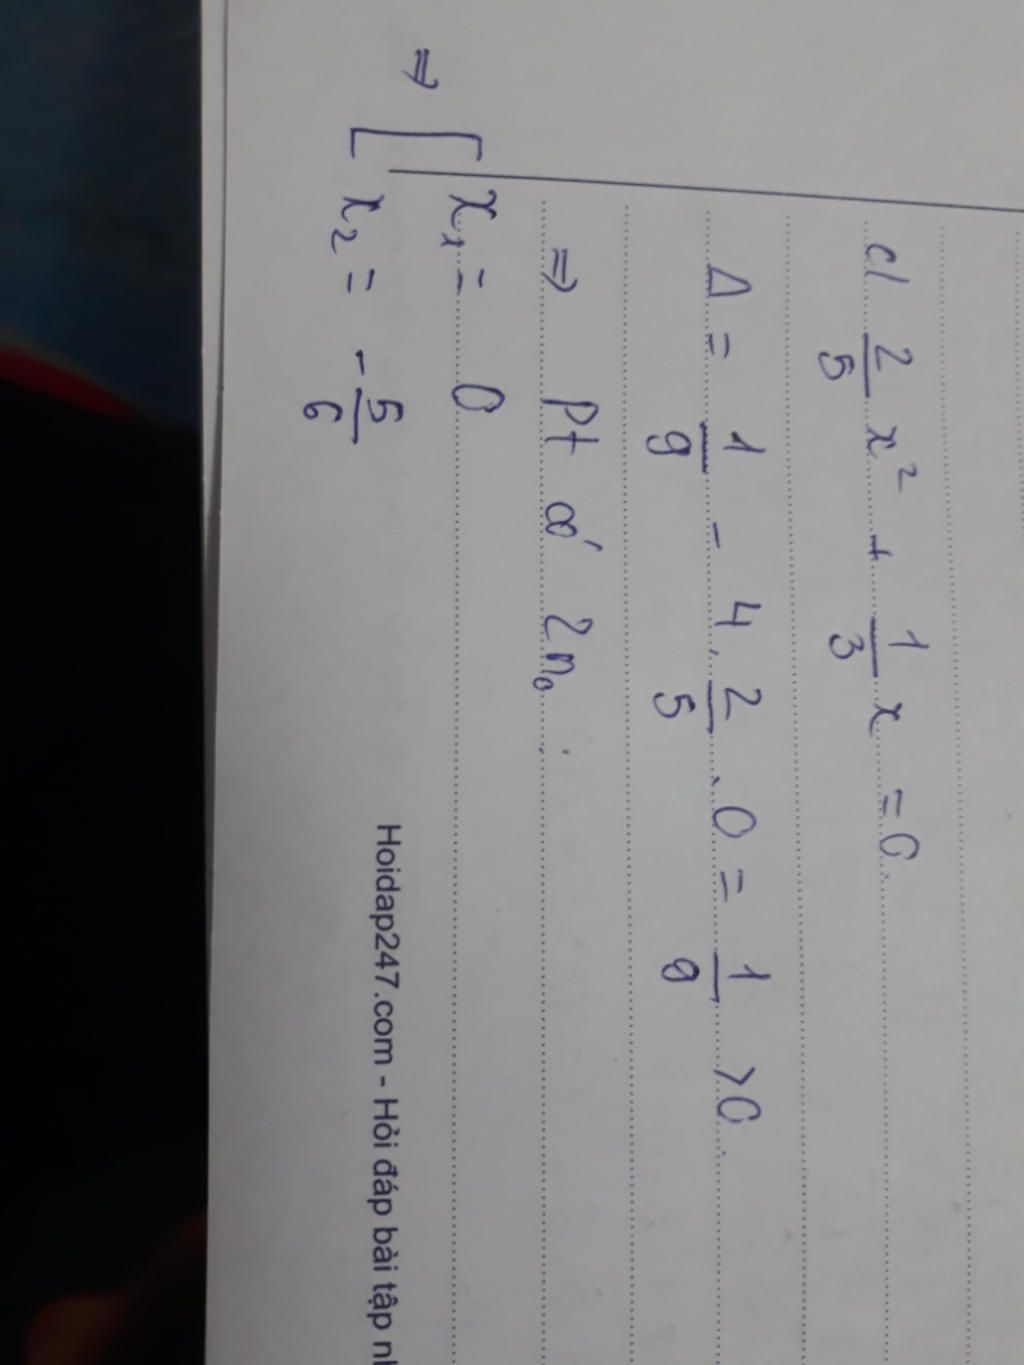 c/ 2/5 x² + 1/3 x = 0
Δ = 1/9 - 4. 2/5 . 0 = 1/9 > 0
⇒ Pt có 2 n0
⇒ [ x₁ = 0
x₂ = - 5/6
Hoidap247.com - Hỏi đáp bài tập